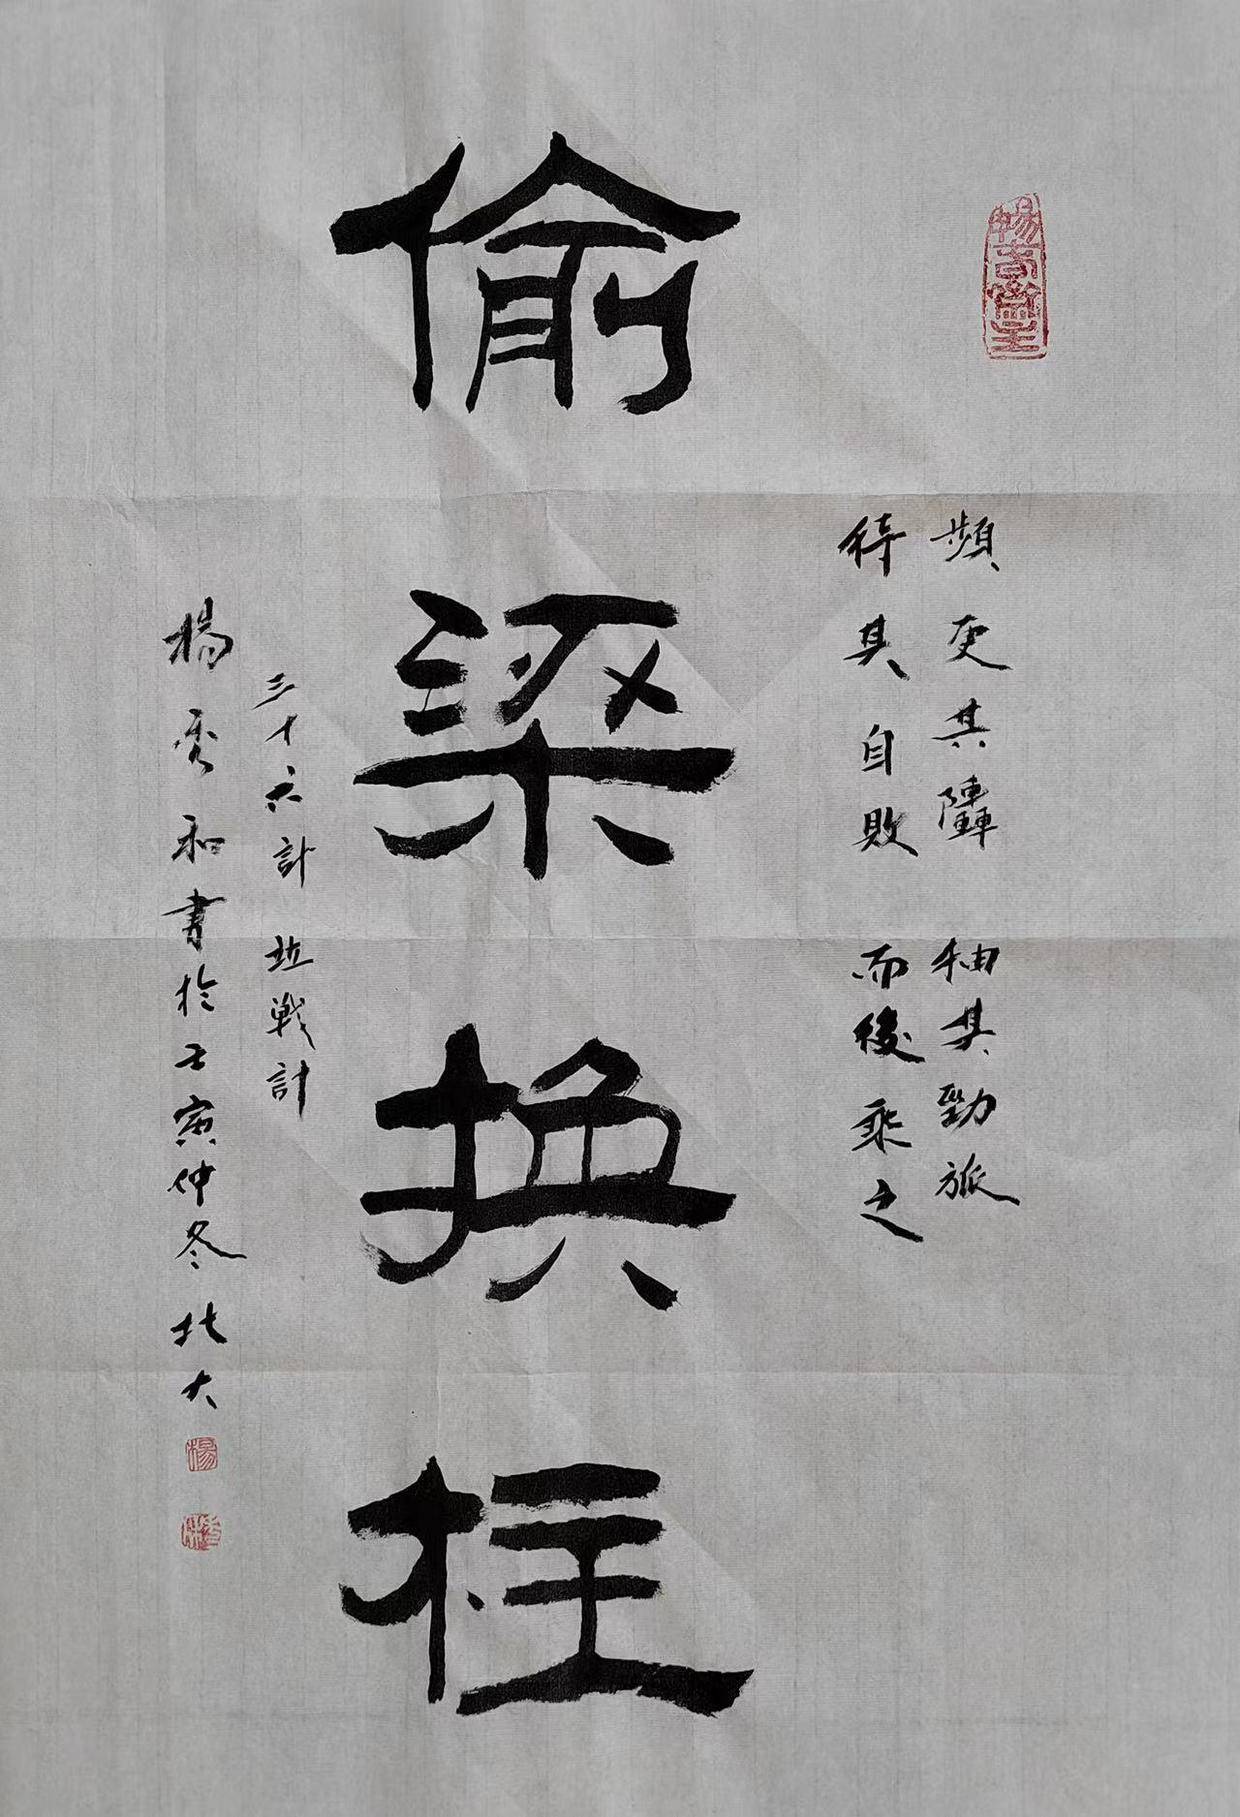 頻更其陣 抽其勁旅
待其自敗 而後乘之
偷梁換柱
三十六計 竝戰計
楊秀和書於壬寅仲冬北大
楊